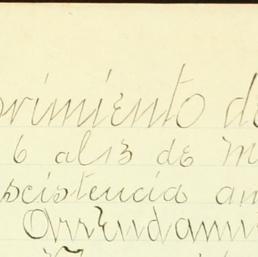 ovimiento de
6 al 13 de M
scistencia an
Arrendami